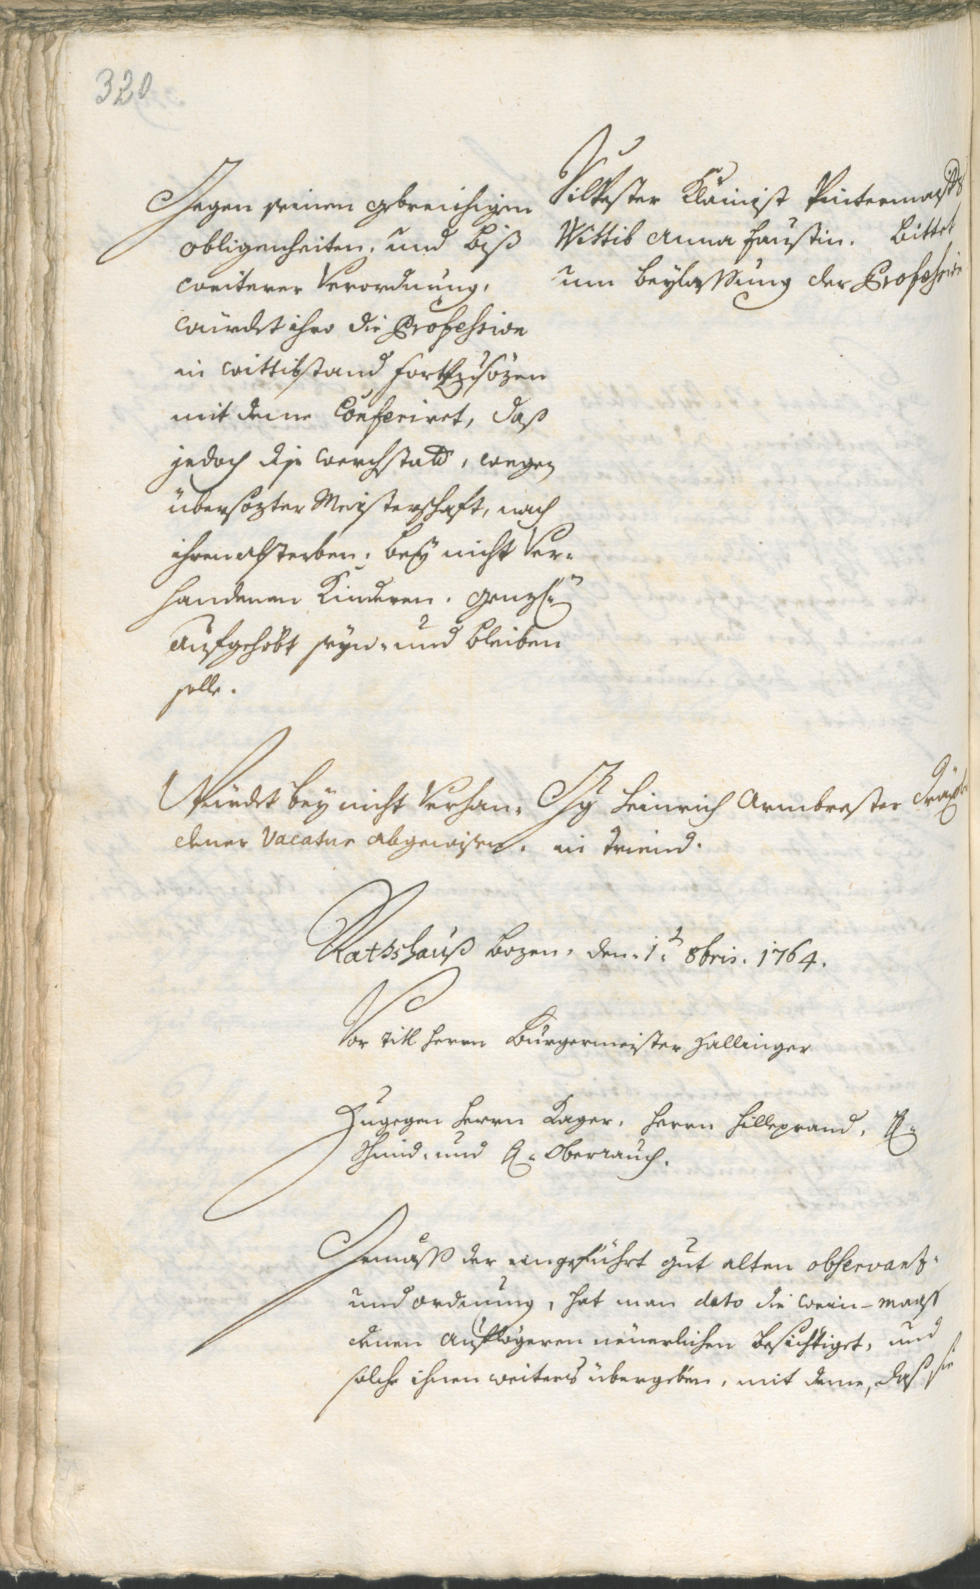 320
Gegen seinen gebreichigen
obligenheiten, und biß
weiterer Verordnung,
würdet ihro die Profession
in wittibstand fortzusözen
mit deme Conferiret, daß
jedoch dise werchstatt, wegen
übersözter Meisterschaft, nach
ihren absterben, bey nicht Ver-
handenen Kinderen, genzl:
aufgehöbt seyn- und bleiben
solle.
Silvester Klainist Pintermaist
Wittib Anna Faustin. Bittet
um beylassung der Profession
Würdet bey nicht Verhan-
dener Vacatur abgewisen.
Heinrich Armbroster
in Trient.
Rathshauß Bozen, den 1t 8bris. 1764.
Vor titl Herrn Bürgermeister Hallinger
Zugegen Herrn Kager, Herrn Hilleprand, H:
Schmid, und H: Oberrauch.
Gemäß der eingeführt gut alten observanz-
und ordnung, hat man dato die wein-maaß
denen Auflögeren neüerlichen besichtiget, und
solche ihnen weiters übergeben, mit deme, daß sie